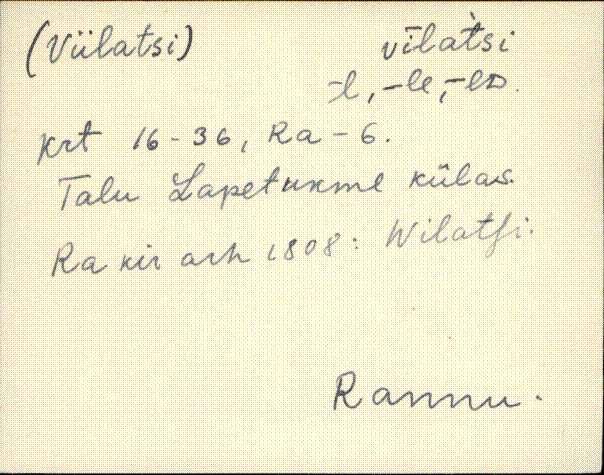 (Viilatsi) vīlat̀si
-l, -le, -lᴅ.
Krt 16-36, Ra-6.
Talu Lapetukme külas.
Ra kir arh 1808: Wilatſi.
Rannu.